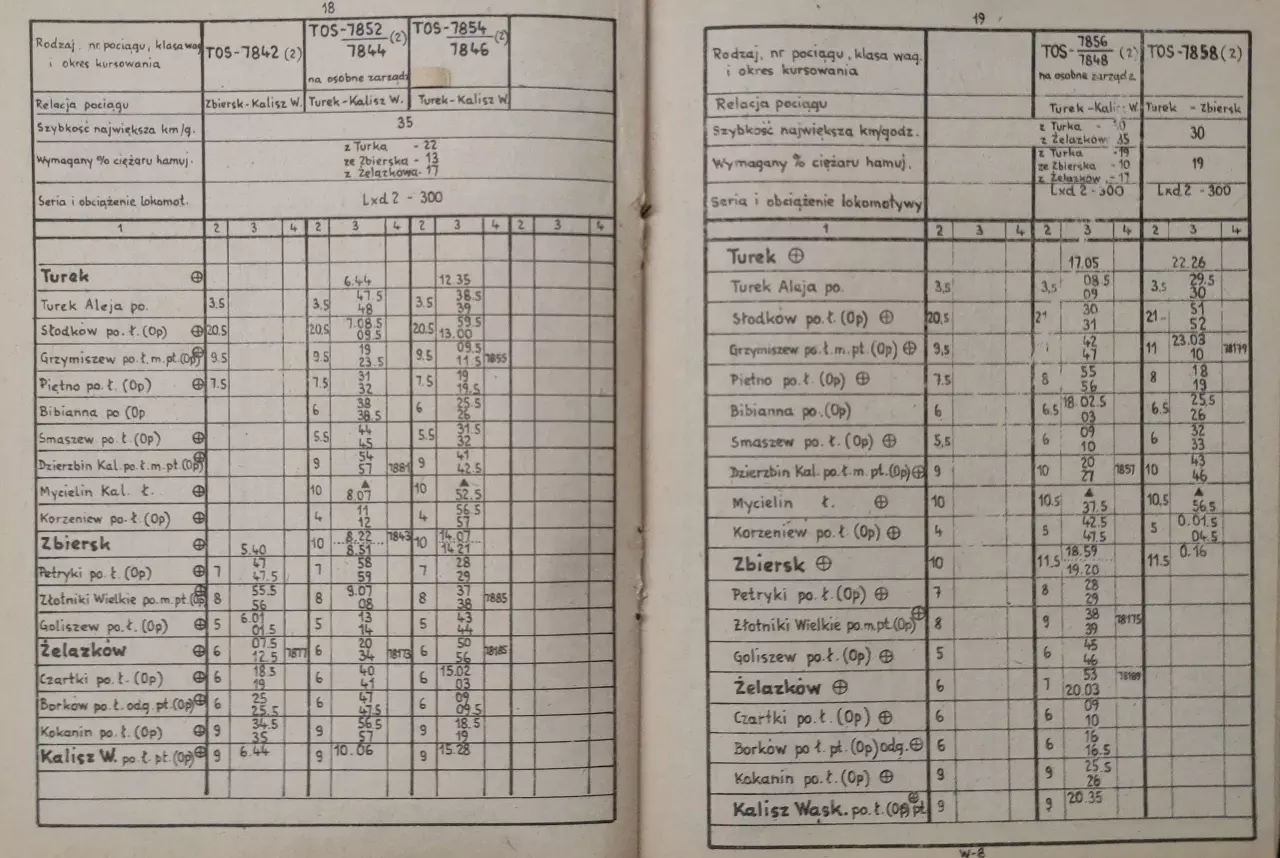 18
Rodzaj, nr. pociągu, klasa wag. i okres kursowania | TOS-7842 (2) | TOS-7852/7844 (2) na osobne zarządz | TOS-7854/7846 (2)
Relacja pociągu | Zbiersk-Kalisz W. | Turek-Kalisz W. | Turek-Kalisz W
Szybkość największa km/g. | 35
Wymagany % ciężaru hamuj. | z Turka - 22
ze Zbierska - 13
z Żelązkowa - 17
Seria i obciążenie lokomot. | Lxd 2 - 300
1 | 2 | 3 | 4 | 2 | 3 | 4 | 2 | 3 | 4 | 2 | 3 | 4
Turek ⊕ | 6.44 | 12.35
Turek Aleja po. | 3,5 | 3,5 | 47.5 48 | 3.5 | 38.5 39
Słodków po. ł. (Op) ⊕ | 20,5 | 20,5 | 7.08.5 09.5 | 20.5 | 59.5 13.00
Grzymiszew po.ł.m.pt.(Op) ⊕ | 9.5 | 9.5 | 19 23.5 | 9.5 | 09.5 11.5 | 7855
Piętno po. ł. (Op) ⊕ | 7.5 | 7.5 | 31 32 | 7.5 | 19 19.5
Bibianna po (Op | 6 | 38 38.5 | 6 | 25.5 26
Smaszew po. ł. (Op) ⊕ | 5.5 | 44 45 | 5.5 | 31.5 32
Dzierzbin Kal. po. ł. m. pt. (Op) ⊕ | 9 | 54 57 | 7881 | 9 | 41 42.5
Mycielin Kal. ł. ⊕ | 10 | ▲ 8.07 | 10 | ▲ 52.5
Korzeniew po. ł (Op) ⊕ | 4 | 11 12 | 4 | 56.5 57
Zbiersk ⊕ | 5.40 | 10 | 8.22 8.51 | 7843 | 10 | 14.07 14.21
Petryki po. ł. (Op) ⊕ | 7 | 47 47.5 | 7 | 58 59 | 7 | 28 29
Złotniki Wielkie po. m. pt. (Op) ⊕ | 8 | 55.5 56 | 8 | 9.07 08 | 8 | 37 38 | 7885
Goliszew po. ł. (Op) ⊕ | 5 | 6.01 01.5 | 5 | 13 14 | 5 | 43 44
Żelązków ⊕ | 6 | 07.5 12.5 | 7877 | 6 | 20 34 | 78173 | 6 | 50 56 | 78185
Czartki po. ł. (Op) ⊕ | 6 | 18.5 19 | 6 | 40 41 | 6 | 15.02 03
Borków po. ł. odg. pt. (Op) ⊕ | 6 | 25 25.5 | 6 | 47 47.5 | 6 | 09 09.5
Kokanin po. ł. (Op) ⊕ | 9 | 34.5 35 | 9 | 56.5 57 | 9 | 18.5 19
Kalisz W. po ł. pt. (Op) ⊕ | 9 | 6.44 | 9 | 10.06 | 9 | 15.28
19
Rodzaj, nr pociągu, klasa wag. i okres kursowania | TOS-7856/7848 (2) na osobne zarządz. | TOS-7858 (2)
Relacja pociągu | Turek-Kalisz W | Turek - Zbiersk
Szybkość największa km/godz. | z Turka - z Żelazków 35 | 30
Wymagany % ciężaru hamuj. | z Turka - 19 ze Zbierska - 10 z Żelazków - 17 | 19
Seria i obciążenie lokomotywy | Lxd 2 - 300 | Lxd 2 - 300
1 | 2 | 3 | 4 | 2 | 3 | 4 | 2 | 3 | 4
Turek ⊕ | 17.05 | 22.26
Turek Aleja po | 3,5 | 3,5 | 08.5 09 | 3,5 | 29.5 30
Słodków po. ł. (Op) ⊕ | 20,5 | 21 | 30 31 | 21 | 51 52
Grzymiszew po. ł. m. pt. (Op) ⊕ | 9,5 | 42 47 | 11 | 23.03 10 | 78179
Piętno po. ł (Op) ⊕ | 7.5 | 8 | 55 56 | 8 | 18 19
Bibianna po. (Op) | 6 | 6.5 | 18.02.5 03 | 6.5 | 25.5 26
Smaszew po. ł. (Op) ⊕ | 5,5 | 6 | 09 10 | 6 | 32 33
Dzierzbin Kal. po. ł. m. pt. (Op) ⊕ | 9 | 10 | 20 27 | 7857 | 10 | 43 46
Mycielin ł. ⊕ | 10 | 10.5 | ▲ 37.5 | 10,5 | ▲ 56.5
Korzeniew po. ł (Op) ⊕ | 4 | 5 | 42.5 47.5 | 5 | 0.01.5 04.5
Zbiersk ⊕ | 10 | 11.5 | 18.59 19.20 | 11.5 | 0.16
Petryki po. ł. (Op) ⊕ | 7 | 8 | 28 29
Złotniki Wielkie po. m. pt. (Op) ⊕ | 8 | 9 | 38 39 | 78175
Goliszew po. ł. (Op) ⊕ | 5 | 6 | 45 46
Żelazków ⊕ | 6 | 7 | 53 20.03 | 78189
Czartki po. ł. (Op) ⊕ | 6 | 6 | 09 10
Borków po ł. pt. (Op) odg. ⊕ | 6 | 6 | 16 16.5
Kokanin po. ł. (Op) ⊕ | 9 | 9 | 25.5 26
Kalisz Wąsk. po. ł. (Op) pt ⊕ | 9 | 9 | 20.35
W-8